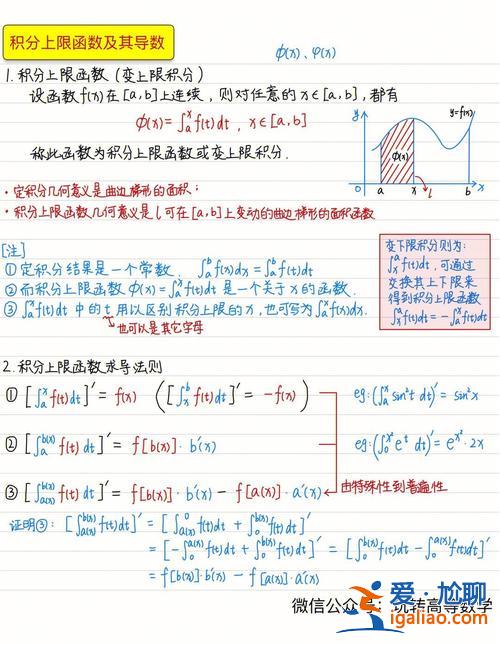 积分上限函数及其导数
ϕ(x)、φ(x)
1. 积分上限函数（变上限积分）
设函数f(x)在[a,b]上连续，则对任意的x∈[a,b]，都有
ϕ(x)=∫ₐˣf(t)dt，x∈[a,b]
称此函数为积分上限函数或变上限积分.
y
y=f(x)
ϕ(x)
a
x
b
x
l
·定积分几何意义是曲边梯形的面积；
·积分上限函数几何意义是l可在[a,b]上变动的曲边梯形的面积函数
[注]
①定积分结果是一个常数. ∫ₐᵇf(x)dx=∫ₐᵇf(t)dt
②而积分上限函数 ϕ(x)=∫ₐˣf(t)dt 是一个关于x的函数.
③∫ₐˣf(t)dt 中的t用以区别积分上限的x，也可写为∫ₐˣf(x)dx.
也可以是其它字母
变下限积分则为：
∫ₓᵃf(t)dt，可通过
交换其上下限来
得到积分上限函数
∫ₓᵃf(t)dt=-∫ₐˣf(t)dt
2. 积分上限函数求导法则
①[∫ₐˣf(t)dt]′=f(x) ([∫ₓᵇf(t)dt]′=-f(x))
eg:(∫ₐˣsin²t dt)′=sin²x
②[∫ₐ^{b(x)}f(t)dt]′=f[b(x)]·b′(x)
eg:(∫₀^{x²}eᵗ dt)′=e^{x²}·2x
③[∫_{a(x)}^{b(x)}f(t)dt]′=f[b(x)]·b′(x)-f[a(x)]·a′(x)
由特殊性到普遍性
证明③：[∫_{a(x)}^{b(x)}f(t)dt]′=[∫_{a(x)}^{0}f(t)dt+∫₀^{b(x)}f(t)dt]′
=[-∫₀^{a(x)}f(t)dt+∫₀^{b(x)}f(t)dt]′=[∫₀^{b(x)}f(t)dt-∫₀^{a(x)}f(t)dt]′
=f[b(x)]·b′(x)-f[a(x)]·a′(x)
微信公众号：玩转高等数学
爱·尬聊
igaliao.com